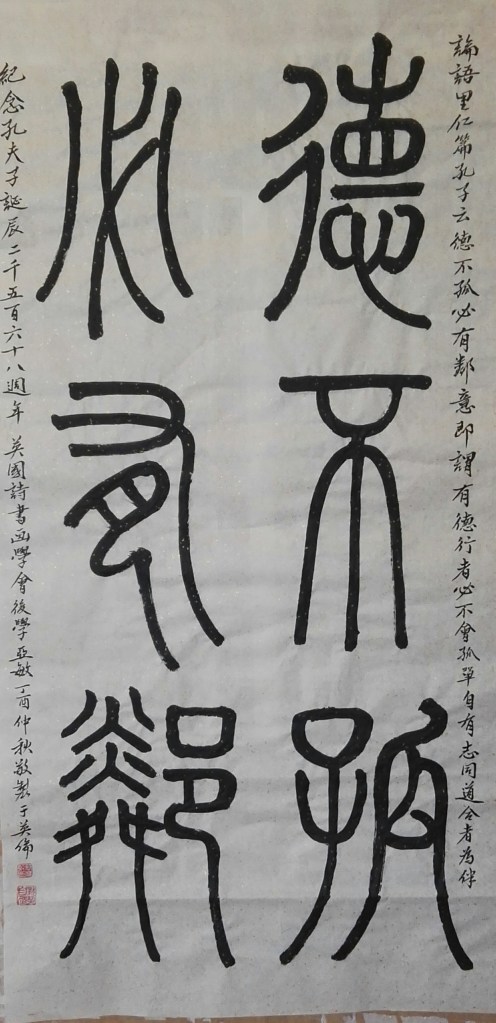 論語里仁篇孔子云德不孤必有鄰意即謂有德行者必不會孤單自有志同道合者為伴
德不孤
必有鄰
紀念孔夫子誕辰二千五百六十八週年 英國詩書画學會後學亞敏丁酉仲秋敬製于英倫